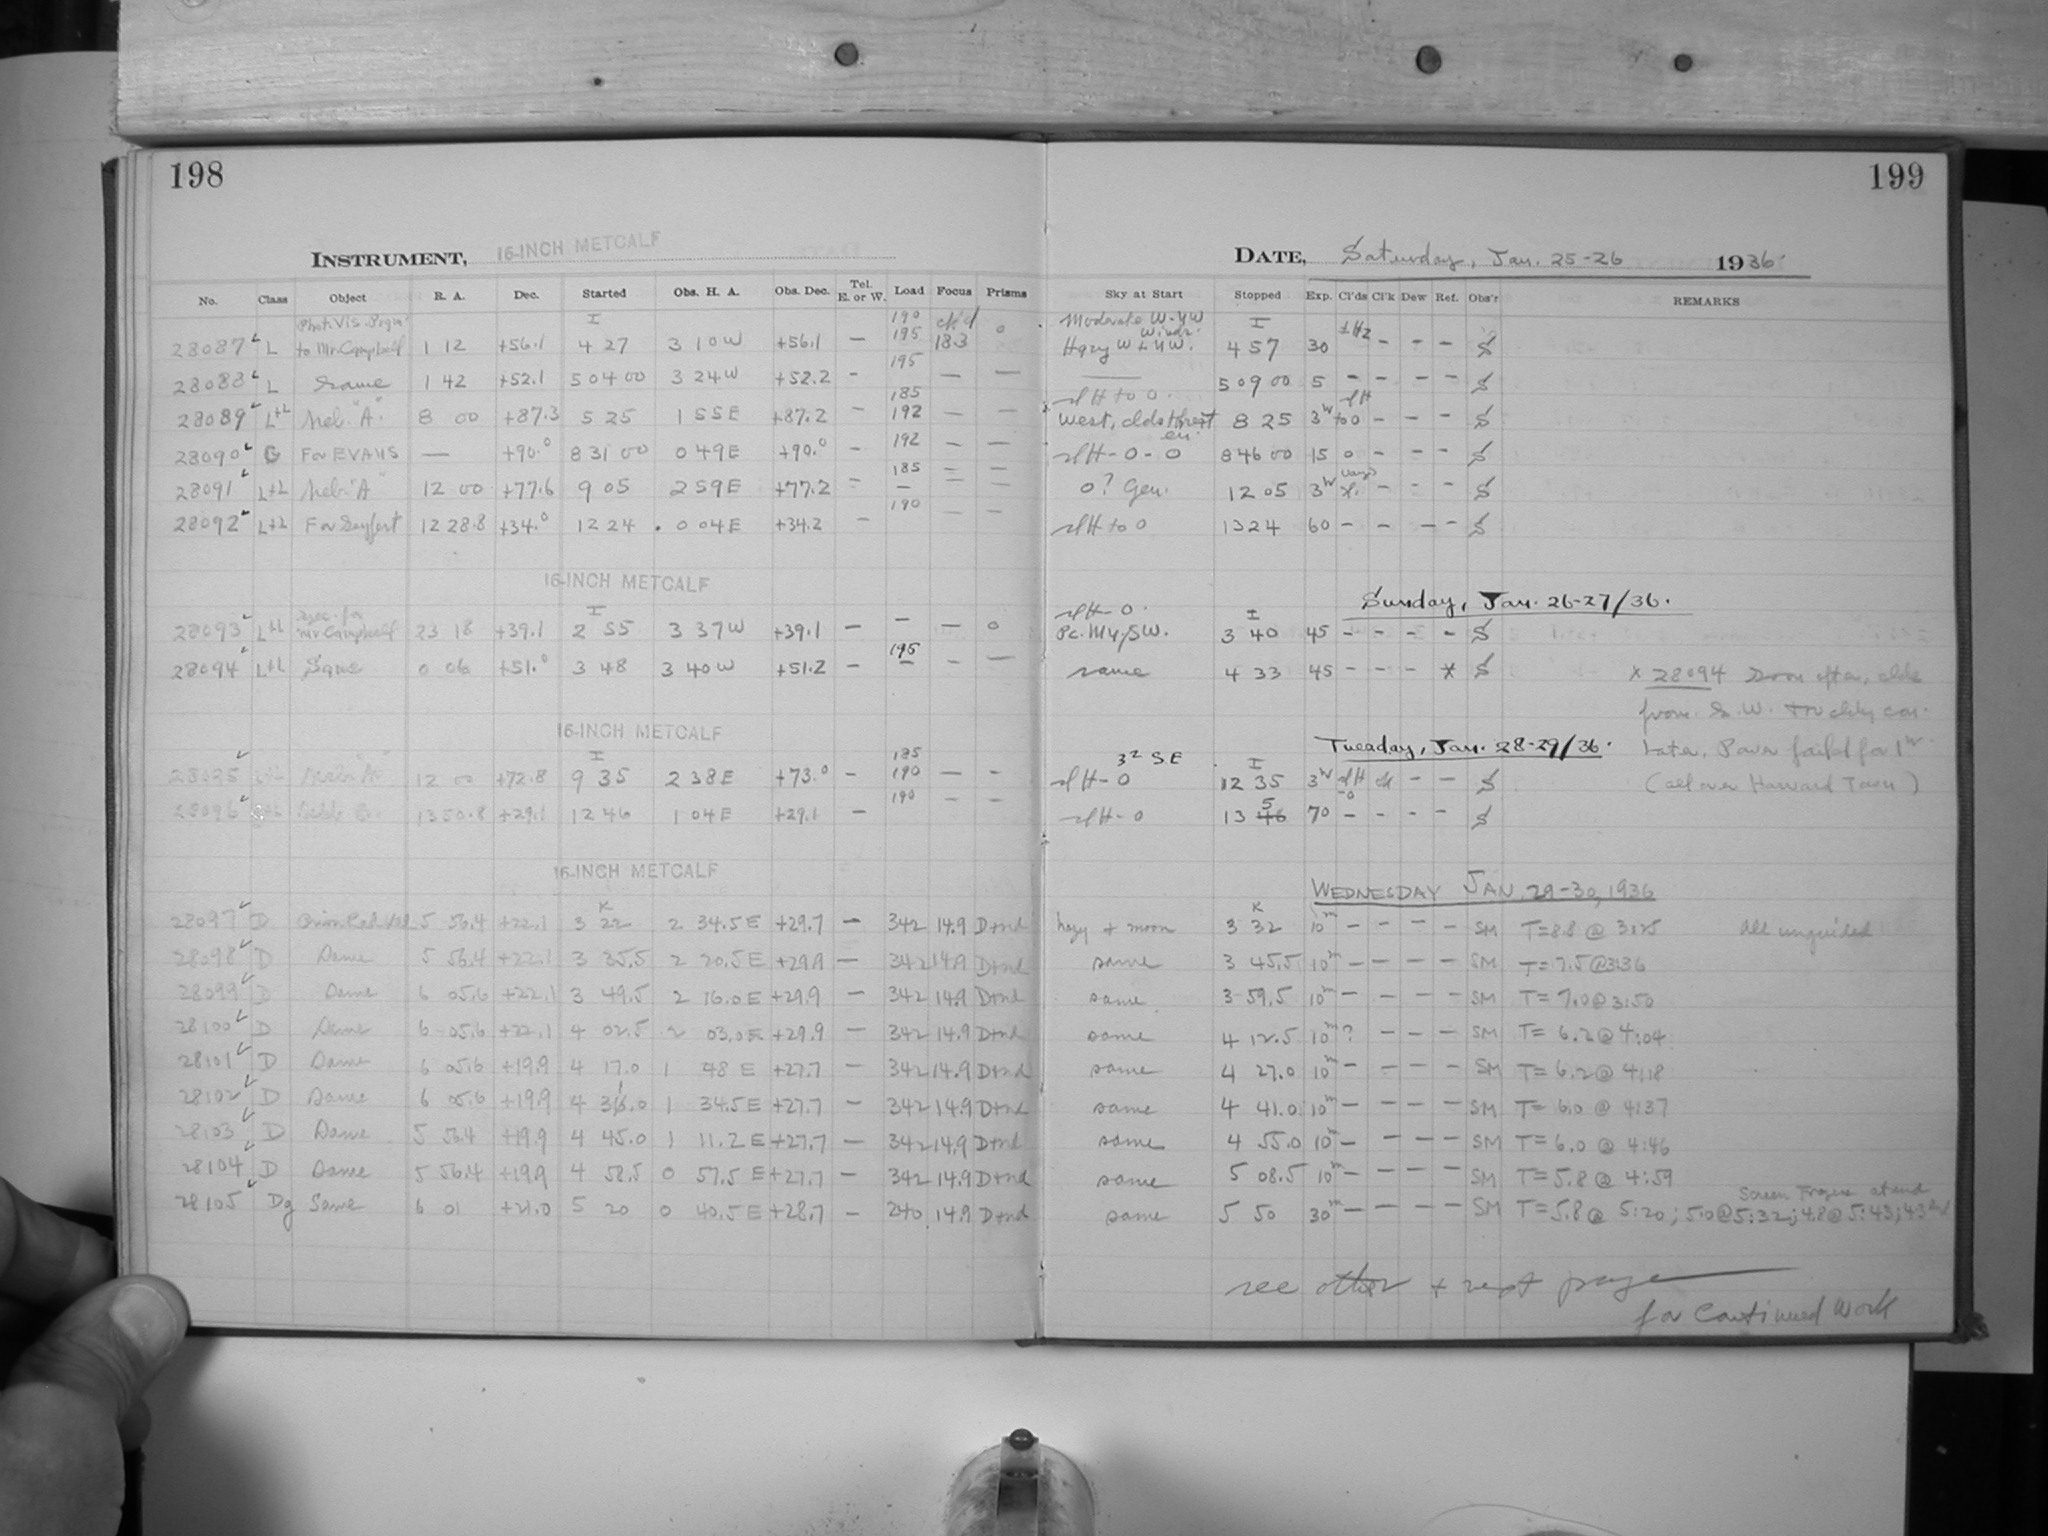 198
199
INSTRUMENT, 16-INCH METCALF
DATE, Saturday, Jan. 25-26 1936.
No. Class Object R. A. Dec. Started Obs. H. A. Obs. Dec. Tel. E. or W. Load Focus Prisms Sky at Start Stopped Exp. Cl'ds Cl'k Dew Ref. Obs'r REMARKS
Phot. Vis. I 190 ck'd Moderate W-NW I
28087 L to Mr. Campbell 1 12 +56.1 4 27 3 10 W +56.1 — 195 18.3 0 Hazy W + NW. 4 57 30 — — — S
28088 L Same 1 42 +52.1 5 04 00 3 24 W +52.2 — 195 — — 5 09 00 5 — — — — S
28089 L+L Neb. "A" 8 00 +87.3 5 25 1 55 E +87.2 — 185 192 — — slH to 0. West, clds 8 25 3 to 0 — — — S
28090 G For EVANS — +90.0 8 31 00 0 49 E +90.0 192 — — slH - 0 - 0 8 46 00 15 0 — — — S
28091 L+L Neb. "A" 12 00 +77.6 9 05 2 59 E +77.2 — 185 — — 0? Gen. 12 05 3 — — — S
28092 L+L For Seyfert 12 28.8 +34.0 12 24 0 04 E +34.2 — 190 — — slH to 0 13 24 60 — — — — S
16-INCH METCALF
Sunday, Jan. 26-27/36.
I slH - 0. I
28093 L+L Mr Campbell 23 18 +39.1 2 55 3 37 W +39.1 — — — 0 3 40 45 — — — — S
28094 L+L Same 0 06 +51.0 3 48 3 40 W +51.2 — 195 — — same 4 33 45 — — — * S
* 28094 Soon after, clds
from S. W.
Later, Power failed for 1
(all over Harvard Town)
16-INCH METCALF
Tuesday, Jan. 28-29/36.
I 185 3² S E I
28095 L+L Neb. "A" 12 00 +72.8 9 35 2 38 E +73.0 — 190 — — slH - 0 12 35 3 slH-0 — — S
28096 13 50.8 +29.1 12 46 1 04 E +29.1 — 190 — — slH - 0 13 56 70 — — — — S
16-INCH METCALF
WEDNESDAY JAN. 29-30, 1936
K K
28097 D 5 56.4 +22.1 3 22 2 34.5 E +29.7 — 342 14.9 D+nd hazy + moon 3 32 10m — — — — SM T=8.8 @ 3:25 All unguided
28098 D Same 5 56.4 +22.1 3 35.5 2 20.5 E +29.9 — 342 14.9 D+nd same 3 45.5 10m — — — — SM T=7.5 @ 3:36
28099 D Same 6 05.6 +22.1 3 49.5 2 16.0 E +29.9 — 342 14.9 D+nd same 3 59.5 10m — — — — SM T=7.0 @ 3:50
28100 D Same 6 05.6 +22.1 4 02.5 2 03.0 E +29.9 — 342 14.9 D+nd same 4 12.5 10m ? — — — SM T=6.2 @ 4:04
28101 D Same 6 05.6 +19.9 4 17.0 1 48 E +27.7 — 342 14.9 D+nd same 4 27.0 10m — — — — SM T=6.2 @ 4:18
28102 D Same 6 05.6 +19.9 4 31.0 1 34.5 E +27.7 — 342 14.9 D+nd same 4 41.0 10m — — — — SM T=6.0 @ 4:37
28103 D Same 5 56.4 +19.9 4 45.0 1 11.2 E +27.7 — 342 14.9 D+nd same 4 55.0 10m — — — — SM T=6.0 @ 4:46
28104 D Same 5 56.4 +19.9 4 58.5 0 57.5 E +27.7 — 342 14.9 D+nd same 5 08.5 10m — — — — SM T=5.8 @ 4:59
28105 Dg Same 6 01 +21.0 5 20 0 40.5 E +28.7 — 240 14.9 D+nd same 5 50 30m — — — — SM T=5.8 @ 5:20; 5.0 @ 5:32; 4.8 @ 5:43; 4.3 Screen Froze at end
see other + next page
for Continued Work